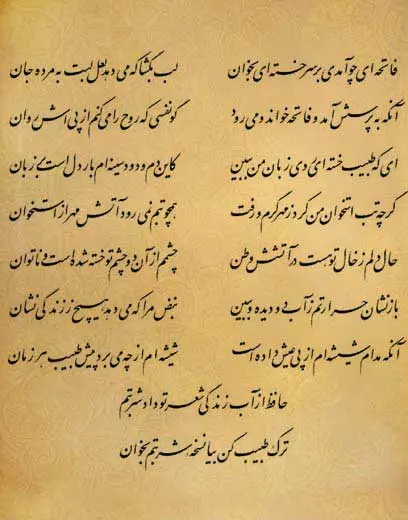 فاتحه ای چو آمدی بر سر خسته ای بخوان لب بگشا که می دهد لعل لبت به مرده جان
آنکه به پرسش آمد و فاتحه خواند و می رود گو نفسی که روح را می کنم از پی اش روان
ای که طبیب خسته ای روی زبان من ببین کاین دم و دود سینه ام بار دل است بر زبان
گرچه تب استخوان من کرد ز مهر گرم و رفت همچو تبم نمی رود آتش مهر از استخوان
حال دلم ز خال تو هست در آتشش وطن چشمم از آن دو چشم تو خسته شده است و ناتوان
بازنشان حرارتم ز آب دو دیده و ببین نبض مرا که می دهد هیچ ز زندگی نشان
آنکه مدام شیشه ام از پی عیش داده است شیشه ام از چه می برد پیش طبیب هر زمان
حافظ از آب زندگی شعر تو داد شربتم
ترک طبیب کن بیا نسخه شربتم بخوان